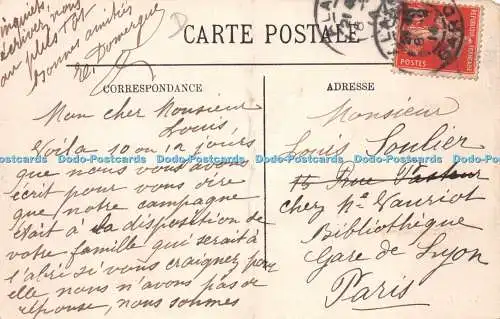 CARTE POSTALE
CORRESPONDANCE
Mon cher Monsieur
Louis,
Voila 10 ou 12 jours
que nous vous avons
écrit pour vous dire
que notre campagne
était à la disposition de
votre famille qui serait à
l'abri si vous craignez pour
elle nous n'avons pas de
réponse, nous sommes
inquiets,
écrivez nous
au plus tôt
bonnes amitiés
E. Domergue
ADRESSE
Monsieur
Louis Soulier
16 Rue Pasteur
chez Mr Vauriot
Bibliothèque
Gare de Lyon
Paris
REPUBLIQUE FRANCAISE
POSTES
Dodo-Postcards Dodo-Postcards Dodo-Postcards Dodo-Postcards Dodo-Postcards